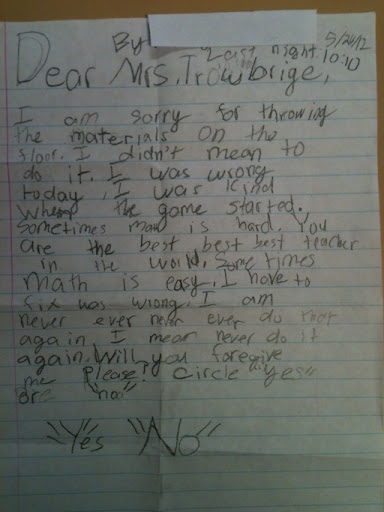 By
5/24/12
Last night. 10:10
Dear Mrs. Trowbrige,
I am sorry for throwing
the materials on the
floor. I didn't mean to
do it. I was wrong
today, I was kind
when the game started.
Sometimes math is hard. You
are the best best best teacher
in the world. Some times
math is easy. I have to
six was wrong. I am
never ever never ever do that
again. I mean never do it
again. Will you foregive
me Please? Circle "yes"
ore "no"
"Yes "No"